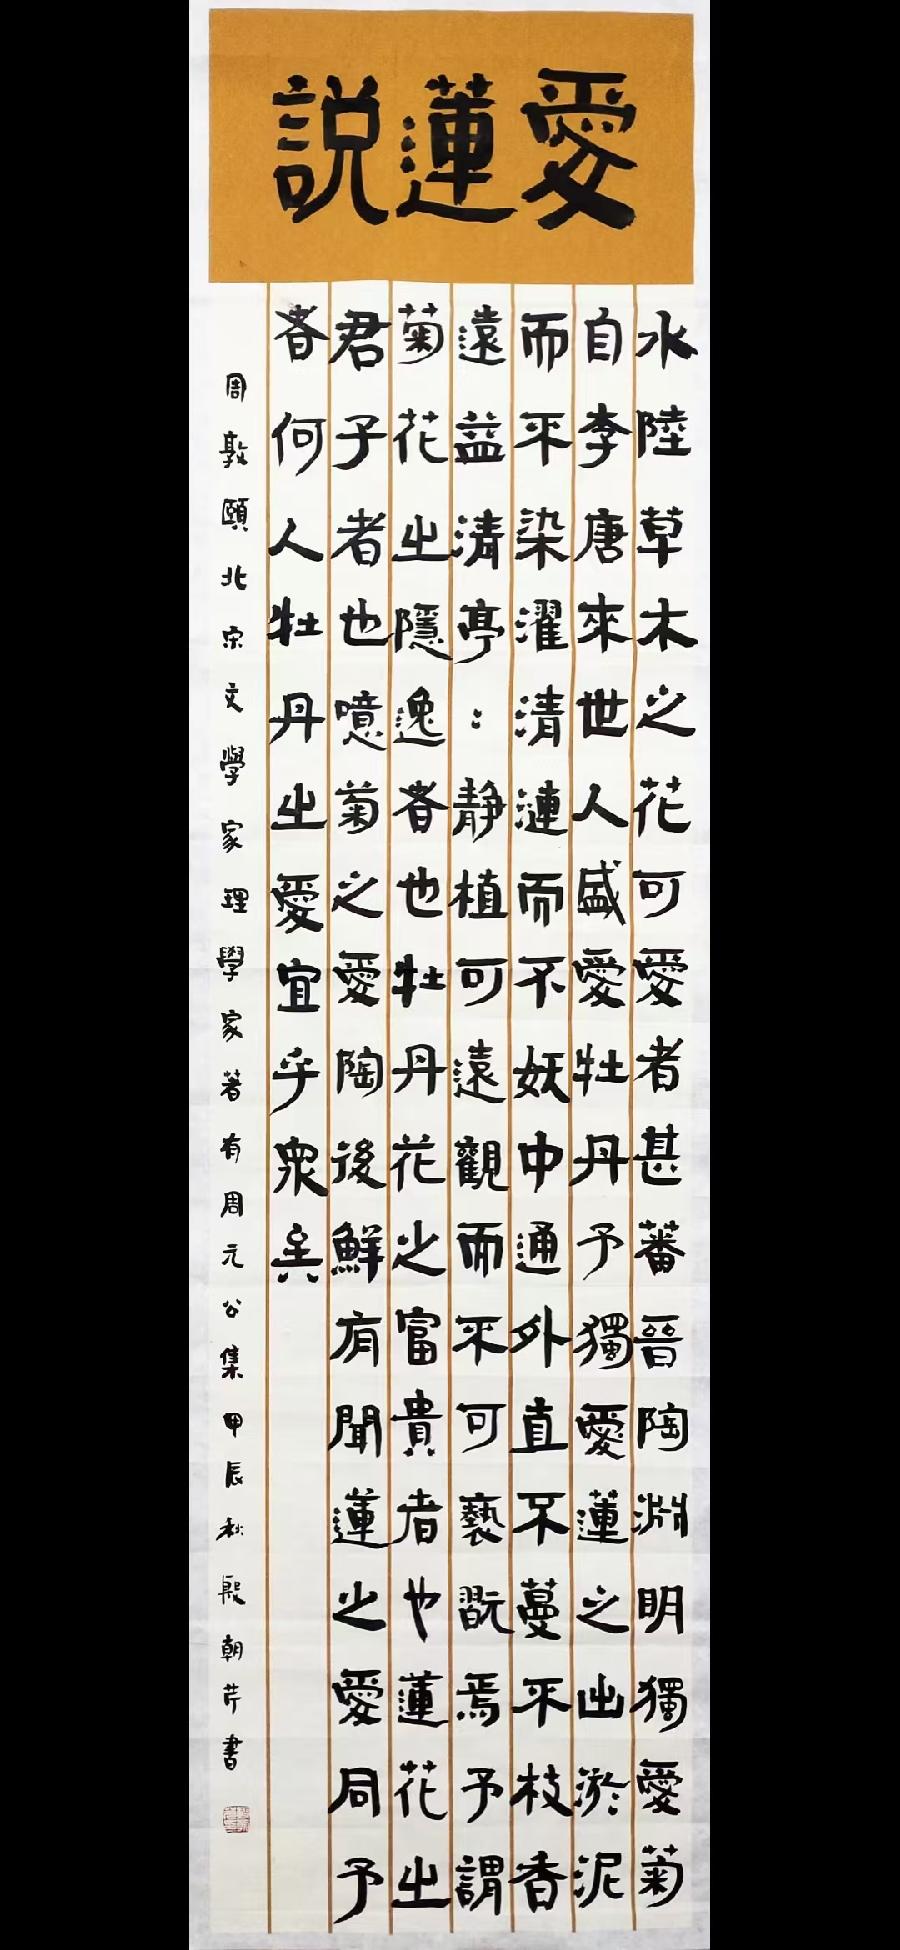 愛蓮説
水陸草木之花可愛者甚蕃晉陶淵明獨愛菊
自李唐來世人盛愛牡丹予獨愛蓮之出淤泥
而不染濯清漣而不妖中通外直不蔓不枝香
遠益清亭：静植可遠觀而不可褻翫焉予謂
菊花之隱逸者也牡丹花之富貴者也蓮花之
君子者也噫菊之愛陶後鮮有聞蓮之愛同予
者何人牡丹之愛宜乎衆矣
周敦頤北宋文學家理學家著有周元公集甲辰秋殷朝芹書